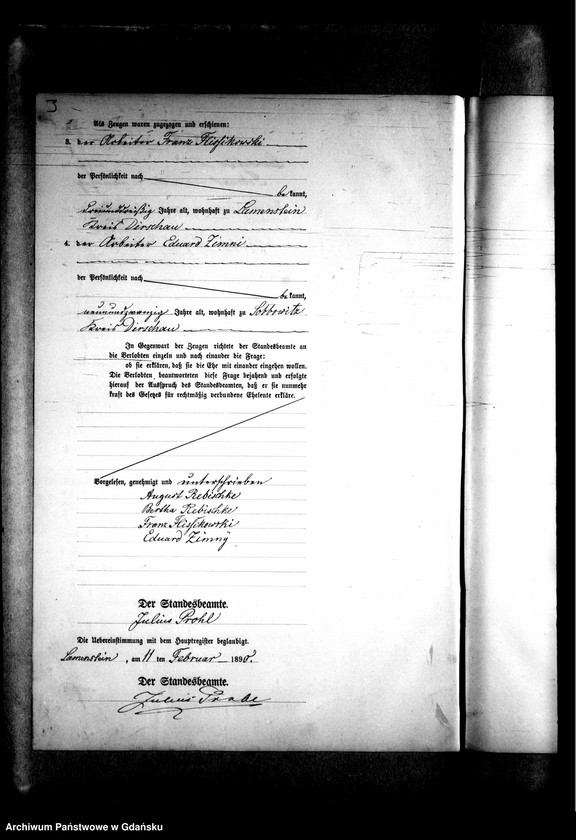 3
Als Zeugen waren zugezogen und erschienen:
3. der Arbeiter Franz Flissikowski
der Persönlichkeit nach
be kannt,
dreiunddreißig Jahre alt, wohnhaft zu Lamenstein
Kreis Dirschau
4. der Arbeiter Eduard Zimni
der Persönlichkeit nach
be kannt,
neunundzwanzig Jahre alt, wohnhaft zu Sobbowitz
Kreis Dirschau
In Gegenwart der Zeugen richtete der Standesbeamte an
die Verlobten einzeln und nach einander die Frage:
ob sie erklären, daß sie die Ehe mit einander eingehen wollen.
Die Verlobten beantworteten diese Frage bejahend und erfolgte
hierauf der Ausspruch des Standesbeamten, daß er sie nunmehr
kraft des Gesetzes für rechtmäßig verbundene Eheleute erkläre.
Vorgelesen, genehmigt und unterschrieben
August Rebischke
Bertha Rebischke
Franz Flissikowski
Eduard Zimny
Der Standesbeamte.
Julius Prohl
Die Uebereinstimmung mit dem Hauptregister beglaubigt.
Lamenstein, am 11 ten Februar 1890.
Der Standesbeamte.
Julius
Archiwum Państwowe w Gdańsku